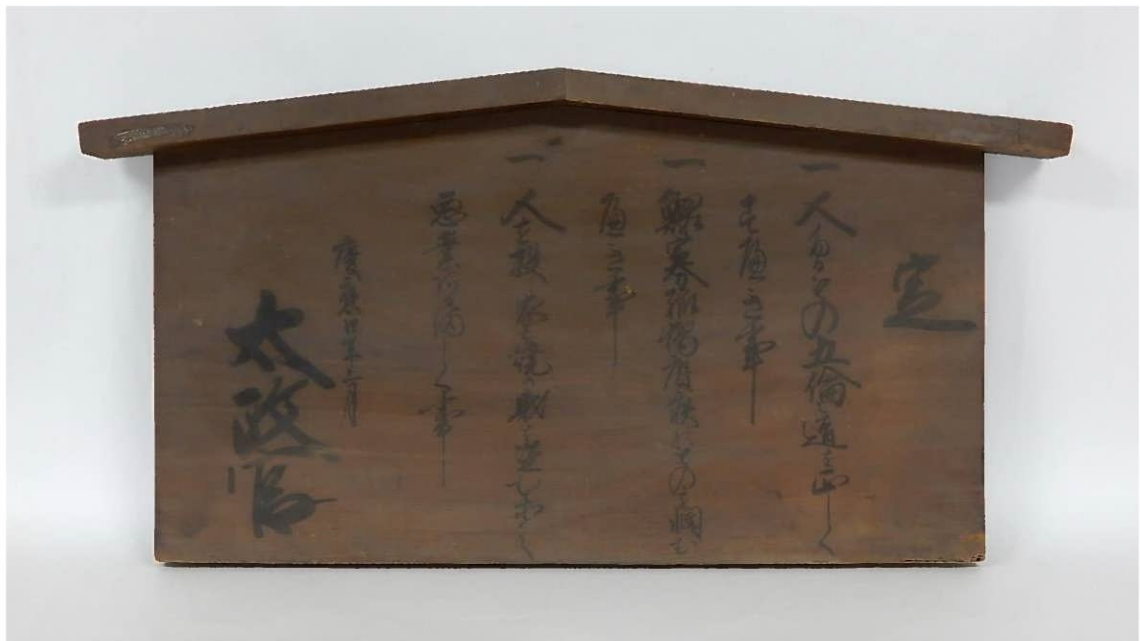 定
一 人たるもの五倫之道を正しく
すへき事
一 鰥寡孤獨廢疾のものを憫む
へき事
一 人を殺し家を焼き財を盗む等之
悪業あるましく事
慶應四年三月
太政官